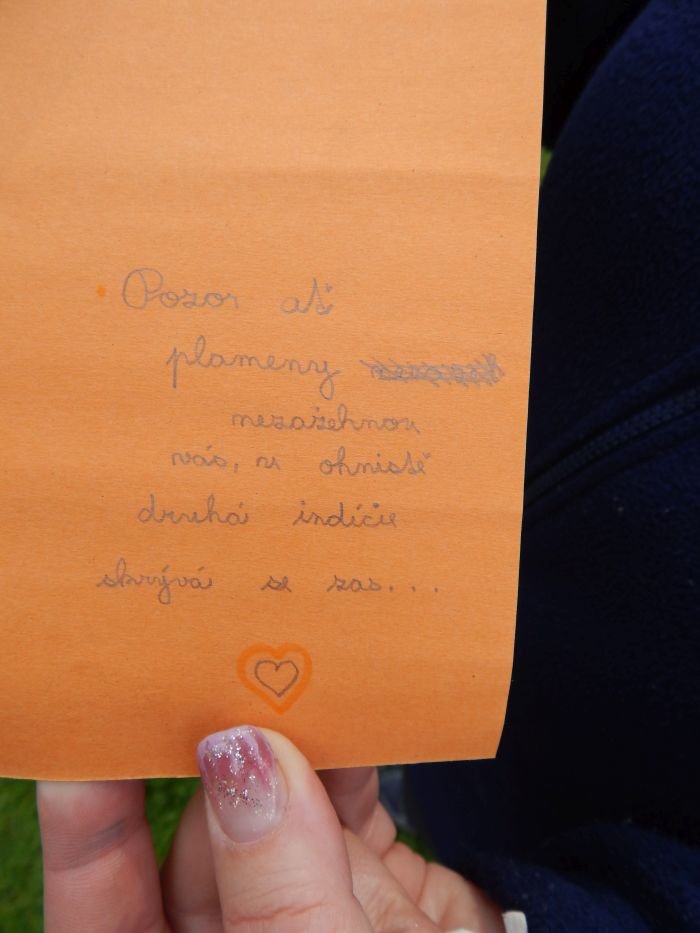 Pozor ať
plameny
nezažehnou
vás, u ohniště
druhá indície
skrývá se zas...